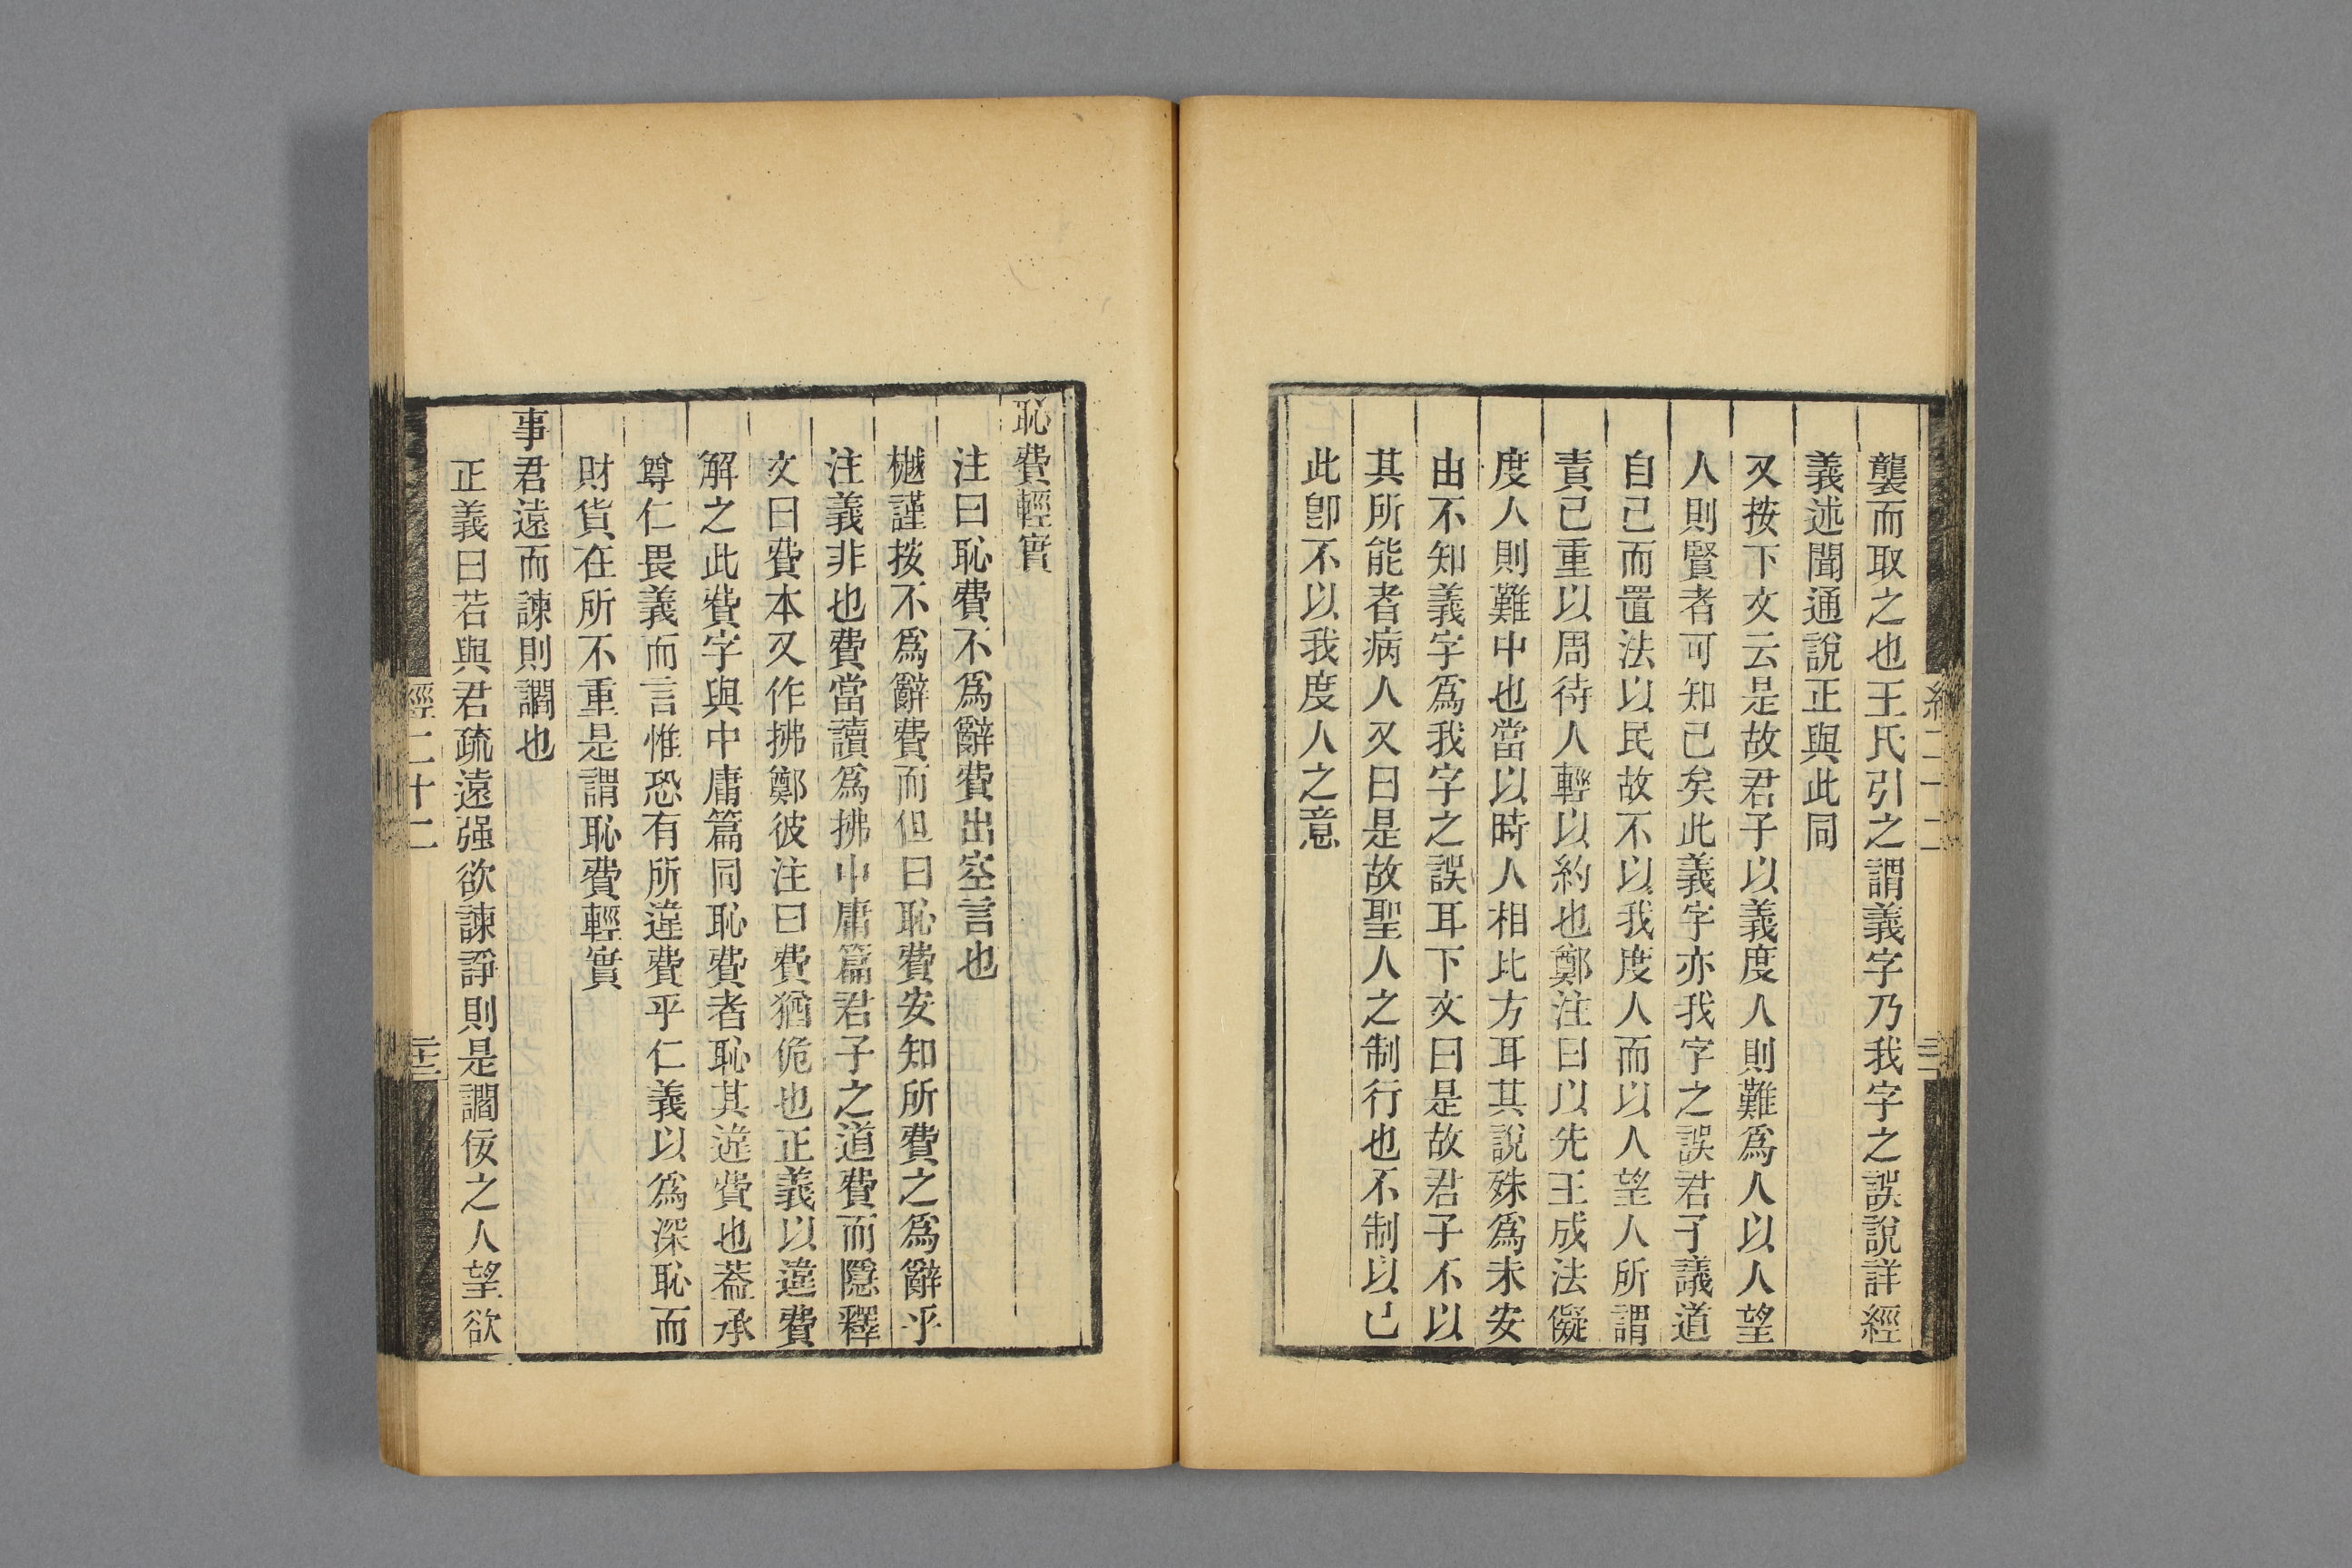 襲而取之也王氏引之謂義字乃我字之誤說詳經
義述聞通說正與此同
又按下文云是故君子以義度人則難爲人以人望
人則賢者可知己矣此義字亦我字之誤君子議道
自己而置法以民故不以我度人而以人望人所謂
責己重以周待人輕以約也鄭注曰以先王成法儗
度人則難中也當以時人相比方耳其說殊爲未安
由不知義字爲我字之誤耳下文曰是故君子不以
其所能者病人又曰是故聖人之制行也不制以己
此卽不以我度人之意
恥費輕實
注曰恥費不爲辭費出空言也
樾謹按不爲辭費而但曰恥費安知所費之爲辭乎
注義非也費當讀爲拂中庸篇君子之道費而隱釋
文曰費本又作拂鄭彼注曰費猶佹也正義以違費
解之此費字與中庸篇同恥費者恥其違費也葢承
尊仁畏義而言惟恐有所違費乎仁義以爲深恥而
財貨在所不重是謂恥費輕實
事君遠而諫則讇也
正義曰若與君疏遠强欲諫諍則是讇佞之人望欲
經二十二